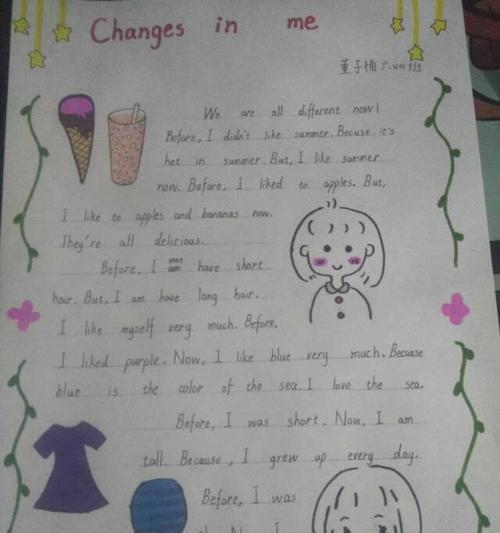 Changes in me
董子楠 六.四班
We are all different now!
Before, I didn't like summer. Becuse it's
hot in summer. But, I like summer
now. Before, I liked to apples. But,
I like to apples and bananas now.
They're all delicious.
Before, I was am have short
hair. But, I am have long hair.
I like myself very much. Before,
I liked purple. Now, I like blue very much. Because
blue is the color of the sea. I love the sea.
Before, I was short. Now, I am
tall. Because, I grew up every day.
Before, I was
Now I